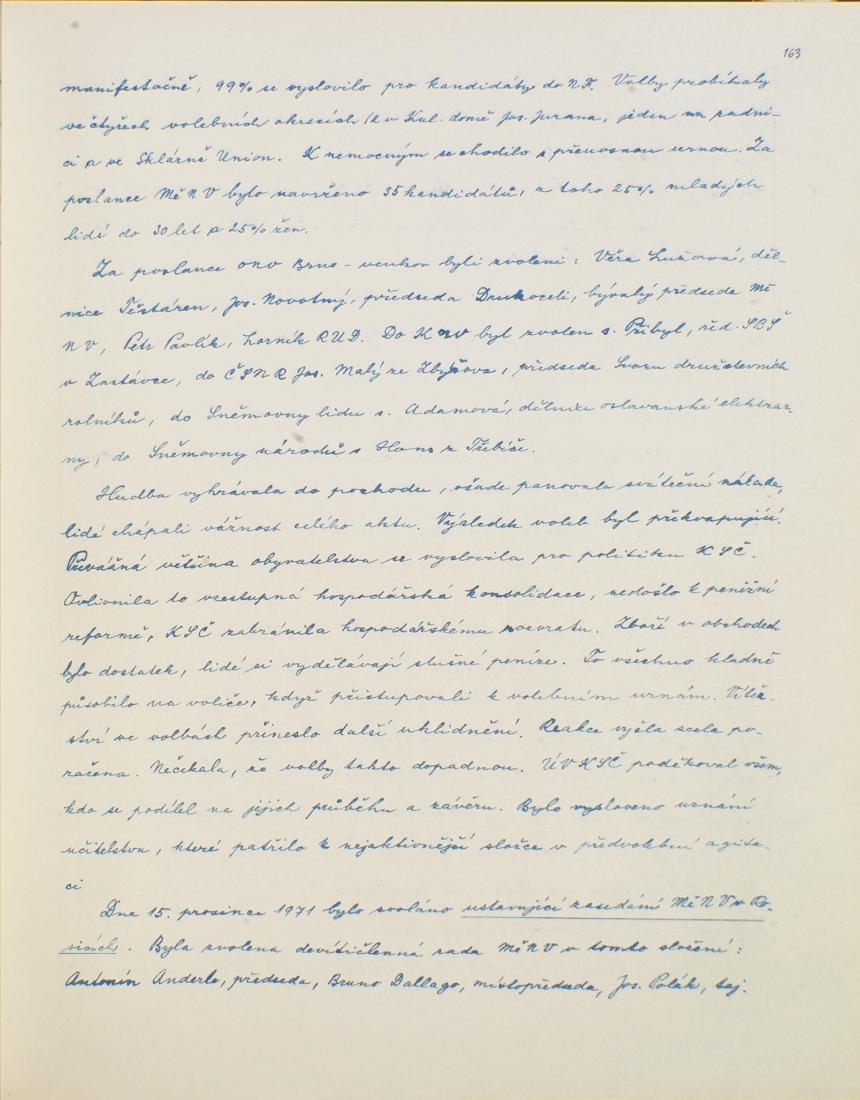 163
manifestačně, 99% se vyslovilo pro kandidáty do NF. Volby probíhaly
ve čtyřech volebních okrscích (2 v Kul. domě Jos. Jurana, jeden na radni-
ci a ve Sklárně Union. K nemocným se chodilo s přenosnou urnou. Za
poslance MěNV bylo navrženo 35 kandidátů, z toho 25% mladých
lidí do 30 let a 25% žen.
Za poslance ONV Brno-venkov byli zvoleni: Věra Lužová, děl-
nice Těstáren, Jos. Novotný, předseda Drukoceli, bývalý předseda Mě
NV, Petr Pavlík, horník RUD. Do KNV byl zvolen s. Přibyl, řed. SBŠ
v Zastávce, do ČSNR Jos. Malý ze Zbýšova, předseda Svazu družstevních
rolníků, do Sněmovny lidu s. Adamová, dělnice oslavanské elektrár-
ny, do Sněmovny národů s Hons z Třebíče.
Hudba vyhrávala do pochodu, všude panovala sváteční nálada,
lidé chápali vážnost celého aktu. Výsledek voleb byl překvapující.
Převážná většina obyvatelstva se vyslovila pro politiku KSČ.
Ovlivnila to vzestupná hospodářská konsolidace, nedošlo k peněžní
reformě, KSČ zabránila hospodářskému rozvratu. Zboží v obchodech
bylo dostatek, lidé si vydělávají slušné peníze. To všechno kladně
působilo na voliče, když přistupovali k volebním urnám. Vítěz-
ství ve volbách přineslo další uklidnění. Reakce vyšla zcela po-
ražena. Nečekala, že volby takto dopadnou. ÚV KSČ poděkoval všem,
kdo se podílel na jejich průběhu a závěru. Bylo vysloveno uznání
učitelstvu, které patřilo k nejaktivnější složce v předvolební agita-
ci
Dne 15. prosince 1971 bylo svoláno ustavující zasedání MěNV v Ro-
sicích. Byla zvolena devítičlenná rada MěNV v tomto složení:
Antonín Anderle, předseda, Bruno Dallago, místopředseda, Jos. Polák, taj.